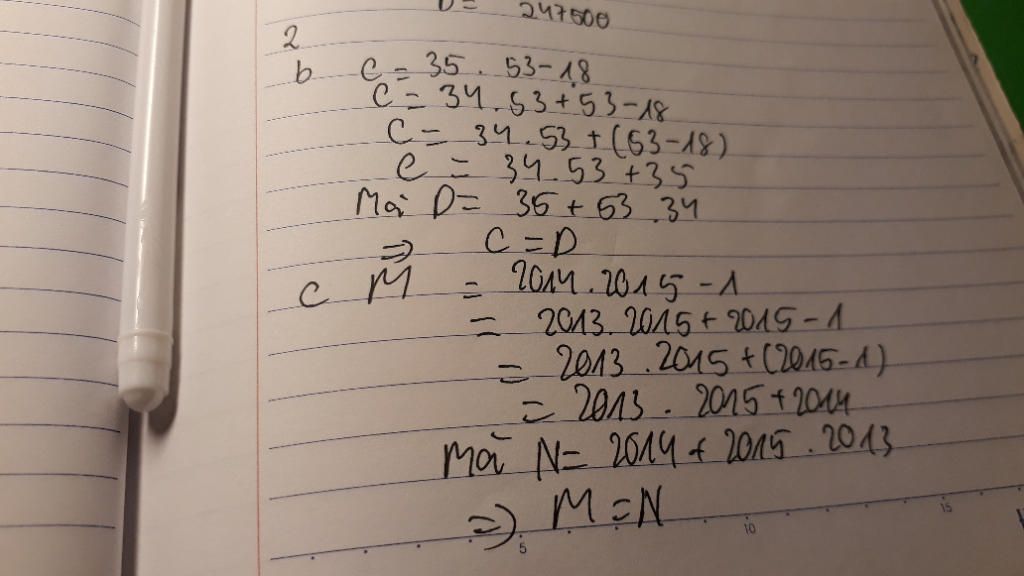 D= 247500
2
b C = 35 . 53 - 18
C = 34 . 53 + 53 - 18
C = 34 . 53 + (53 - 18)
C = 34 . 53 + 35
Mà D = 35 + 53 . 34
⇒ C = D
c M = 2014 . 2015 - 1
= 2013 . 2015 + 2015 - 1
= 2013 . 2015 + (2015 - 1)
= 2013 . 2015 + 2014
Mà N = 2014 + 2015 . 2013
⇒ M = N
5 10 15